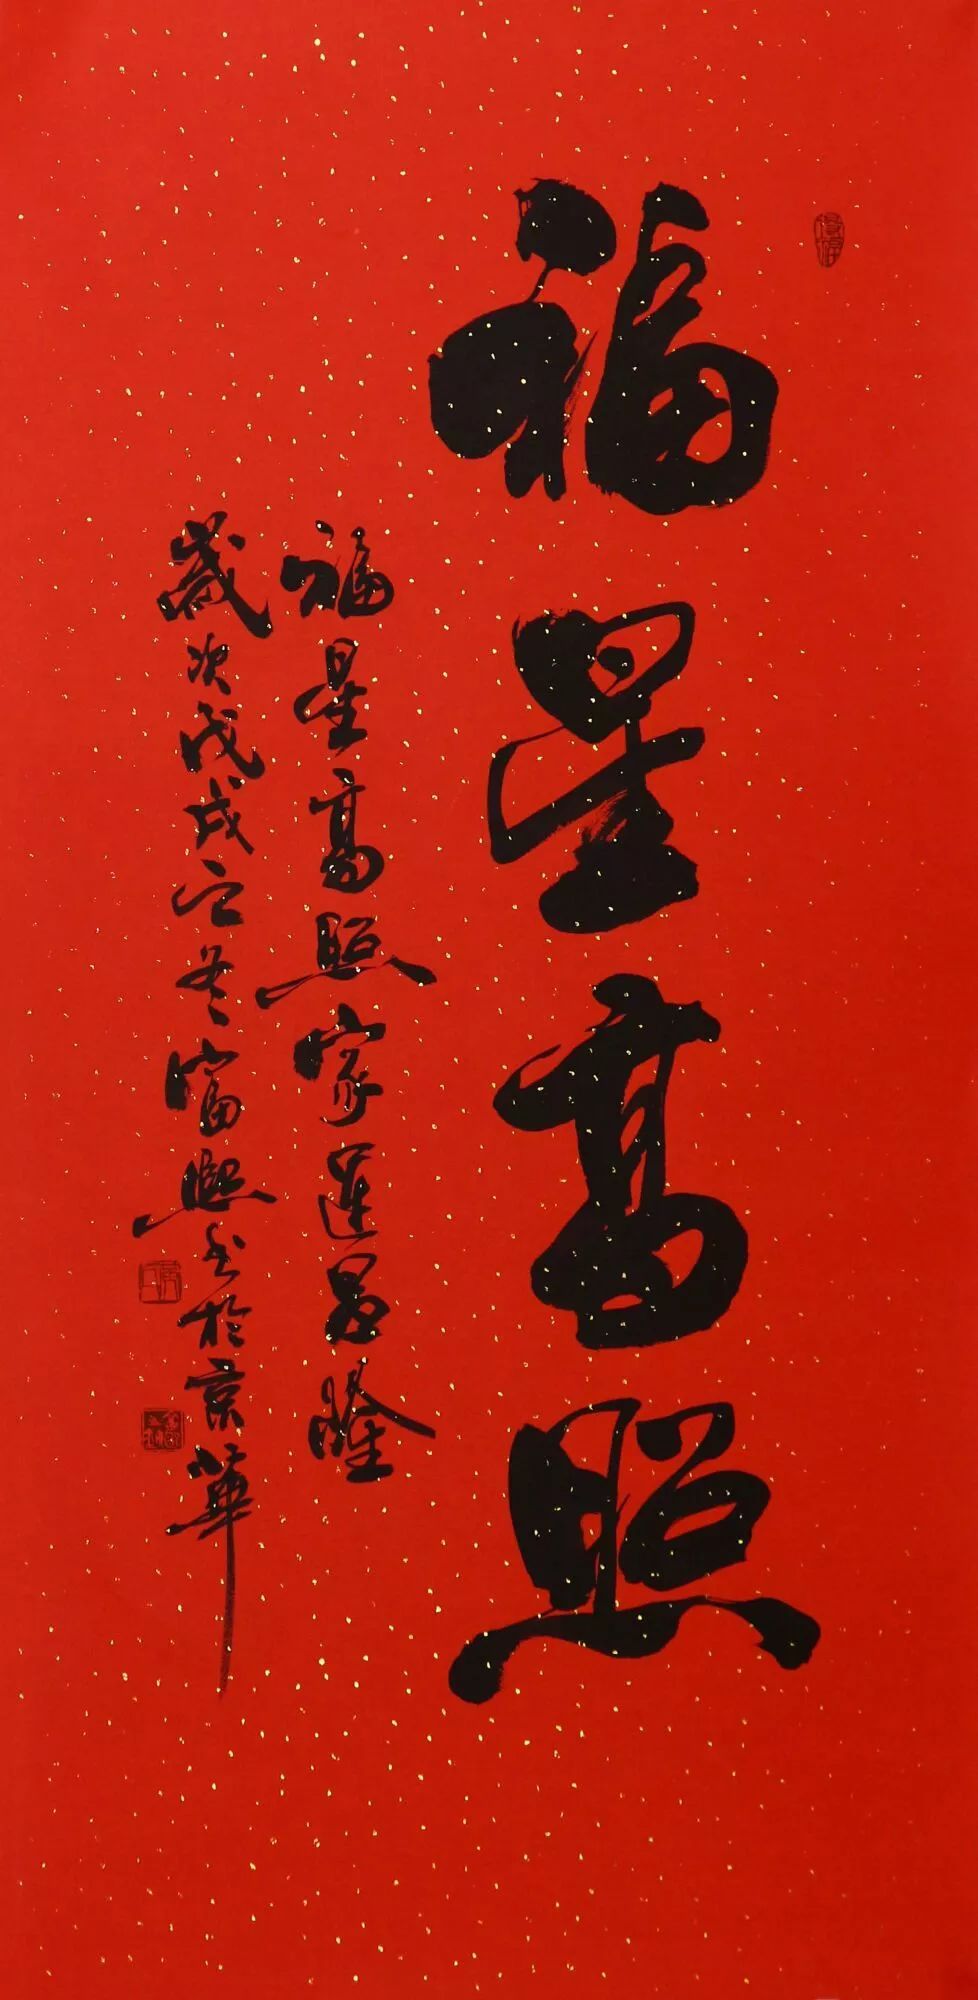 福星高照
福星高照家運昌隆
歲次戊戌之冬富熙书於京華